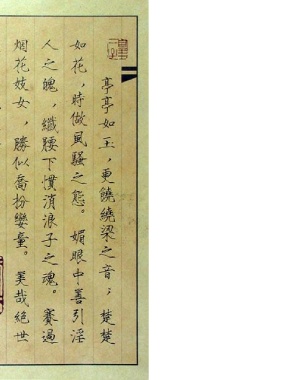 亭亭如玉，更饒繞梁之音；楚楚
如花，時做風騷之態。媚眼中善引淫
人之魄，纖腰下慣消浪子之魂。賽過
烟花妓女，勝似喬扮孌童。美哉絕世